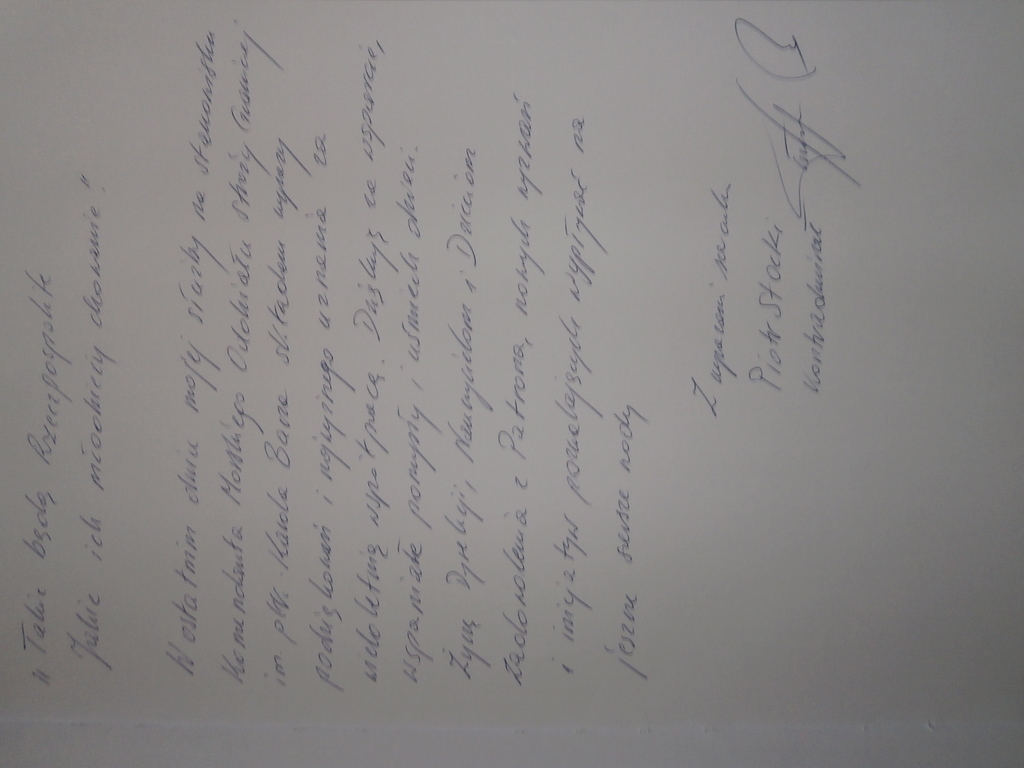 "Takie będą Rzeczpospolite
Jakie ich młodzieży chowanie."
W ostatnim dniu mojej służby na stanowisku
Komendanta Morskiego Oddziału Straży Granicznej
im. płk. Karola Bacza składam wyrazy
podziękowań i najwyższego uznania za
wieloletnią współpracę. Dziękuję za wsparcie,
wspaniałe pomysły i uśmiech dzieci.
Życzę Dyrekcji, Nauczycielom i Dzieciom
zadowolenia z Patrona, nowych wyzwań
i inicjatyw pozwalających wypłynąć na
jeszcze szersze wody
Z wyrazami szacunku
Piotr Stocki
Kontradmirał